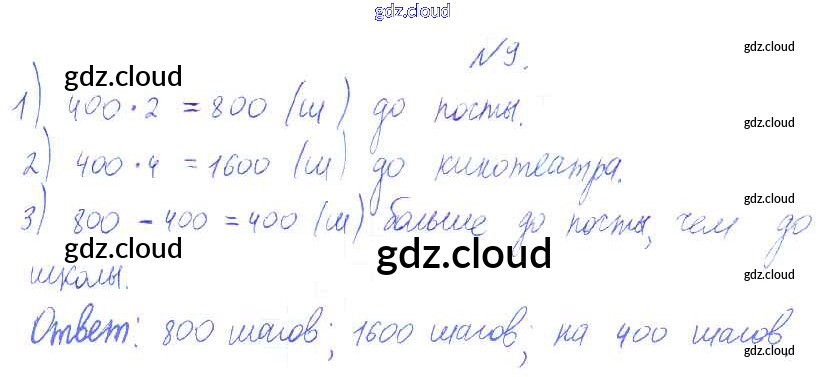 gdz.cloud
№9.
gdz.cloud
gdz.cloud
1) 400·2 = 800 (ш) до посты.
gdz.cloud
2) 400·4 = 1600 (ш) до кинотеатра.
gdz.cloud
3) 800 - 400 = 400 (ш) больше до посты, чем до
gdz.cloud
gdz.cloud
школы.
gdz.cloud
Ответ: 800 шагов; 1600 шагов; на 400 шагов
gdz.cloud